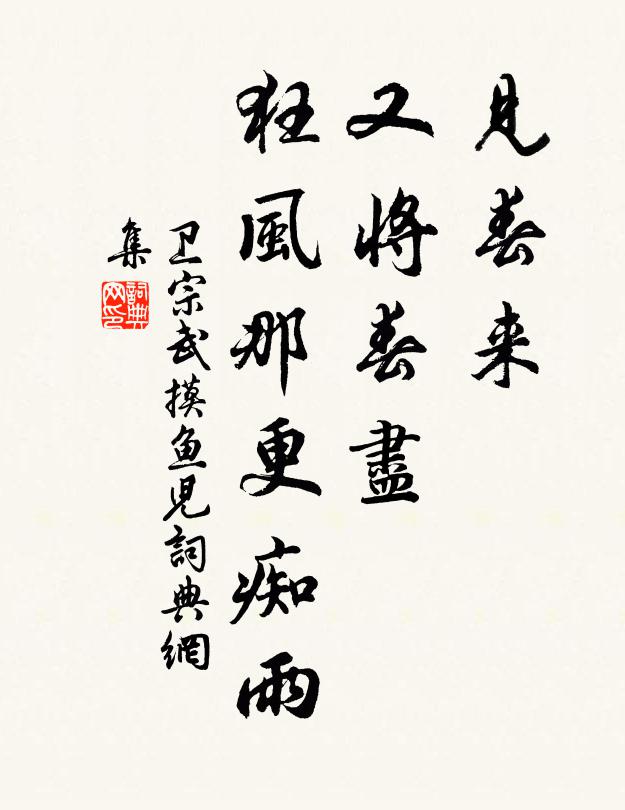 見春来
又將春盡
狂風那更痴雨
卫宗武摸鱼児詞典網
集
詞典
网印